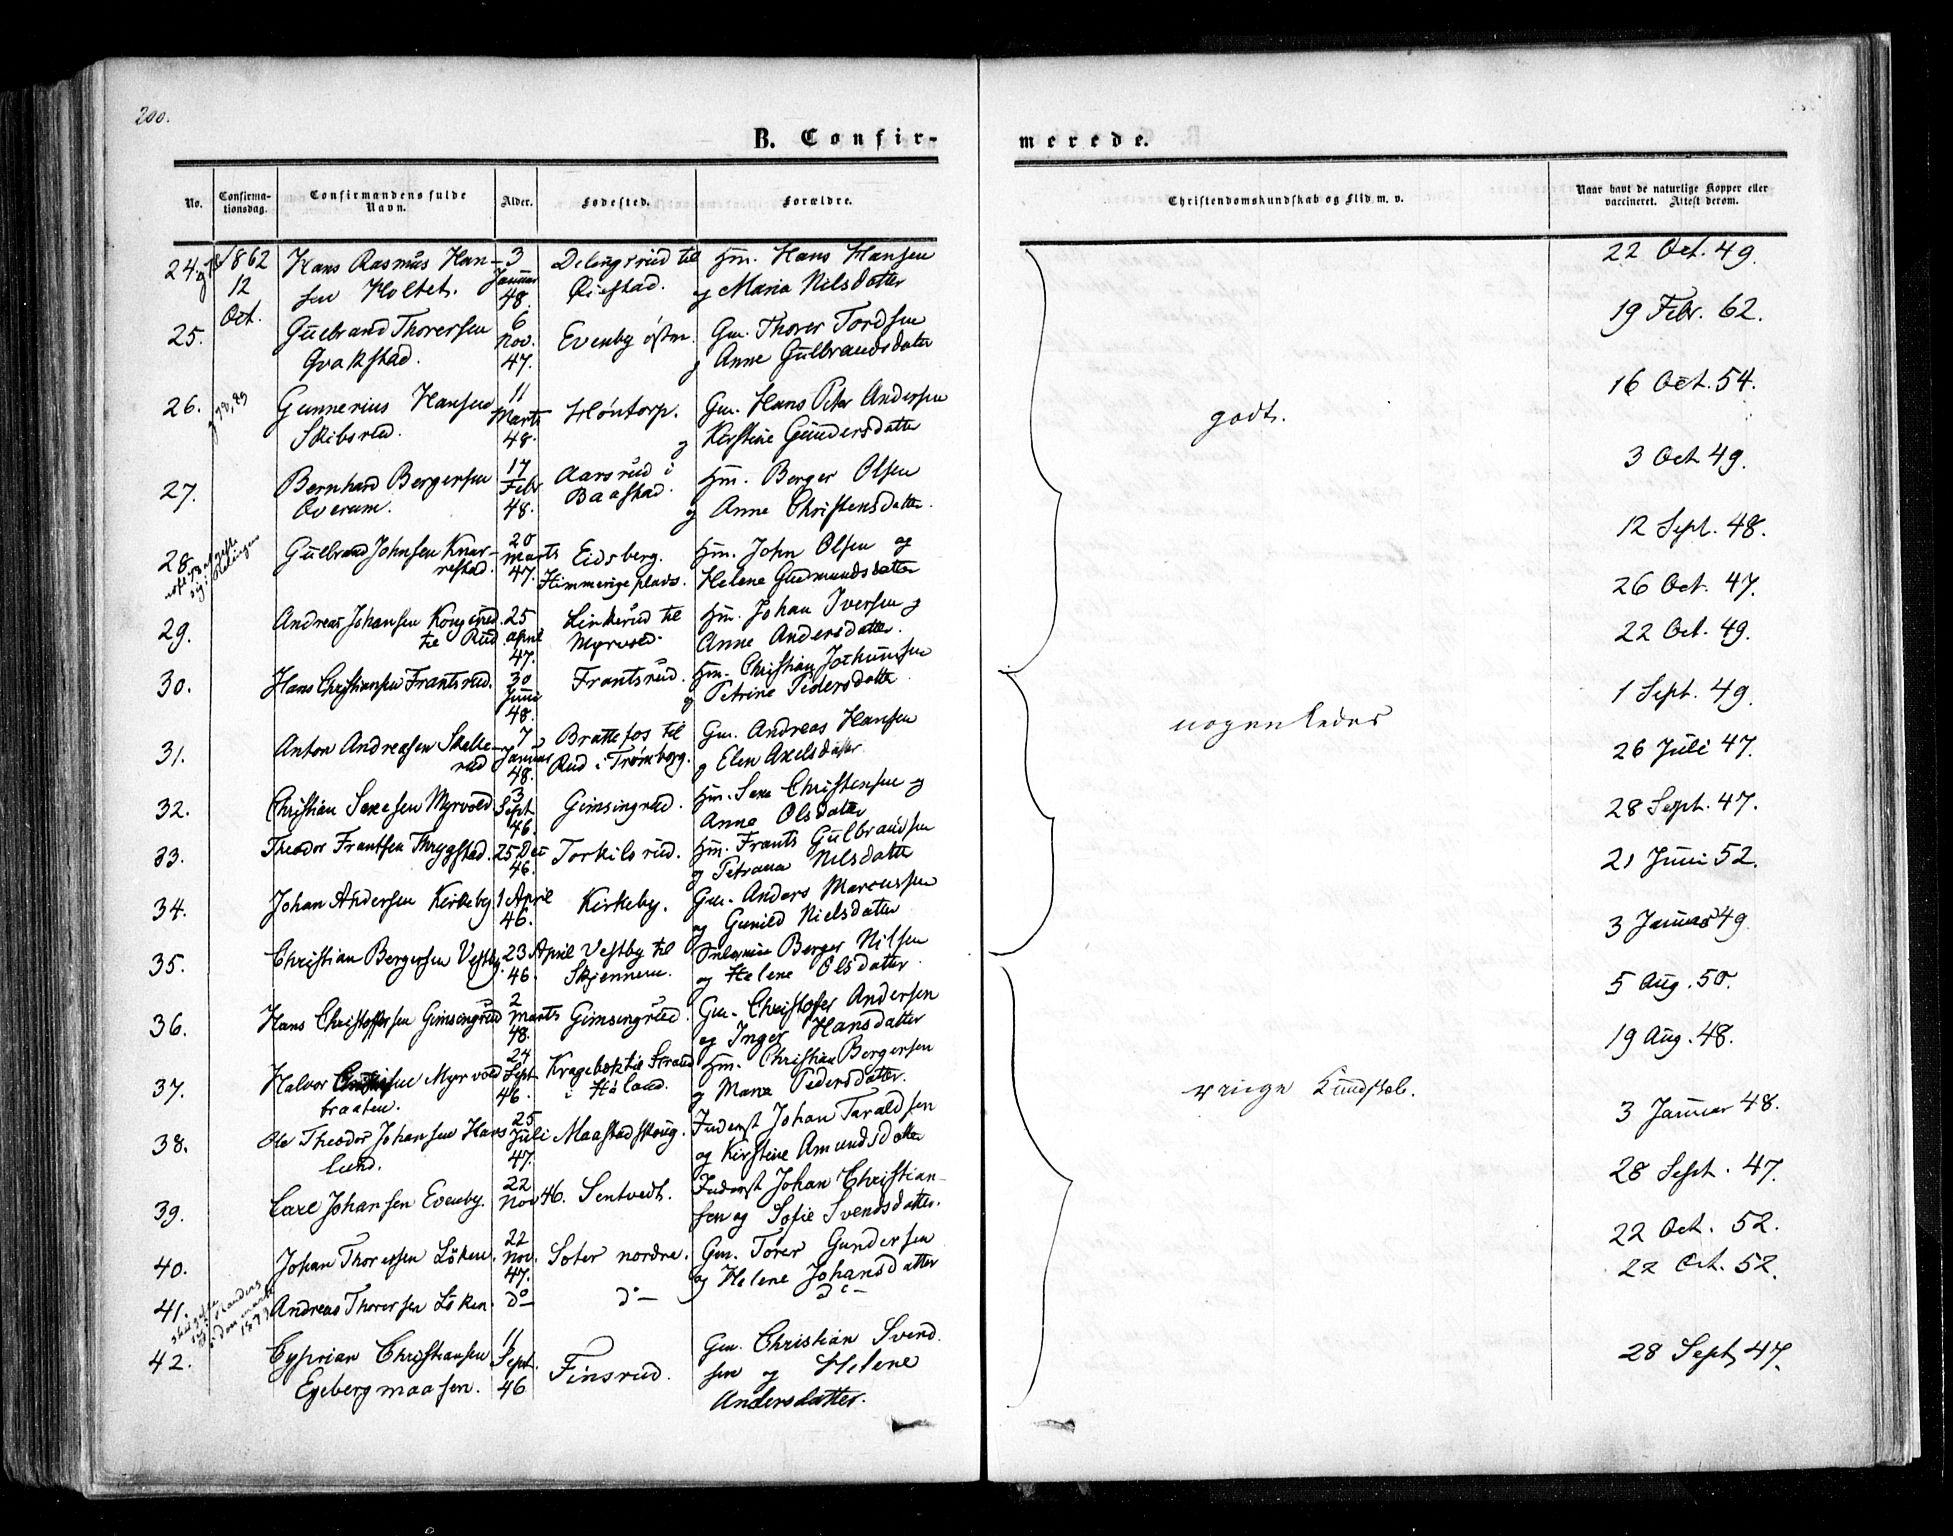 200.
B. Confir-
merede.
No.
Confirma-
tionsdag.
Confirmandens fulde
Navn.
Alder.
Fødested.
Forældre.
Christendomskundskab og Flid m. v.
Naar havt de naturlige Kopper eller
vaccineret. Attest derom.
24. 1862 Hans Rasmus Han- 3 til Hm. Hans Hansen
12 sen Holtet. Januar og Maria Nilsdatter
Oct. 48.
22 Oct. 49.
25. Gulbrand Thorersen 6 Evenby østre. Gm. Thorer Tordsen
Qvakstad. Nov. og Anne Gulbrandsdatter
47.
19 Febr. 62.
26. Gunnerius Hansen 11 Høntorp. Gm. Hans Peter Andersen
Skibsrud. Marts og Kirstine Gundersdatter
48.
16 Oct. 54.
godt.
27. Bernhard Bergersen 17 Aarsrud i Hm. Berger Olsen
Overum. Febr Baastad. og Anne Christensdatter.
48.
3 Oct 49.
28. Gulbrand Johnsen Knar- 20 Eidsberg. Hm. John Olsen og
restad. Marts Himmerige plads. Helene Gudmundsdatter
47.
12 Sept. 48.
29. Andreas Johansen 25 til Hm. Johan Iversen og
til Rud. april Myrvold Anne Andersdatter.
47.
26 Oct. 47.
30. Hans Christiansen Frantsrud. 30 Frantsrud. Hm. Christian Jochumsen
Juni og Petrine Pedersdatter
48.
22 Oct. 49.
31. Anton Andreasen Skelle- 7 Brattefos til Gm. Andreas Hansen
rud Januar Rud i Trømborg. og Elen Axelsdatter
48.
1 Sept. 49.
nogenledes
32. Christian Saxesen Myrvold 3 Gimsingrud. Hm. Saxe Christensen og
Sept Anne Olsdatter
46.
26 Juli 47.
33. Theodor Frantsen Thrygstad. 25 Dec Torkilsrud. Hm. Frants Gulbrandsen
46. og Petrana Nilsdatter
28 Sept. 47.
34. Johan Andersen Kirkeby 1 April Kirkeby. Gm. Anders Marcussen
46. og Gunild Nielsdatter
21 Juni 52.
35. Christian Bergersen Vestby. 23 April Vestby til Berger Nilsen
46. Skjennum. og Helene Olsdatter
3 Januar 49
36. Hans Christoffersen Gimsingrud 2 Gimsingrud. Gm. Christofer Andersen
Marts og Inger Hansdatter
48.
5 Aug. 50.
37. Halvor Myrvold 24 Hm. Christian Bergersen
braaten. Sept i Høland. og Maria Pedersdatter.
46.
19 Aug. 48.
ringe Kundskab.
38. Ole Theodor Johansen Hars 25 Maastadskoug. Inderst Johan Taraldsen
lund. Juli og Kirstine Amundsdatter
47.
3 Januar 48.
39. Carl Johansen Evenby. 22 Sentvedt. Inderst Johan Christian-
Nov 46. sen og Sofie Svendsdatter.
28 Sept. 47.
40. Johan Thorersen Løken. 22 Soter nordre. Gm. Torer Gundersen
Nov. og Helene Johansdatter
47.
22 Oct. 52.
41. Andreas Thorersen Løken. do do do
22 Oct. 52.
42. Cyprian Christiansen 11 Finsrud. Gm. Christian Svend
Egebergmaasen. Sept. sen og Helene
46 Andersdatter.
28 Sept 47.